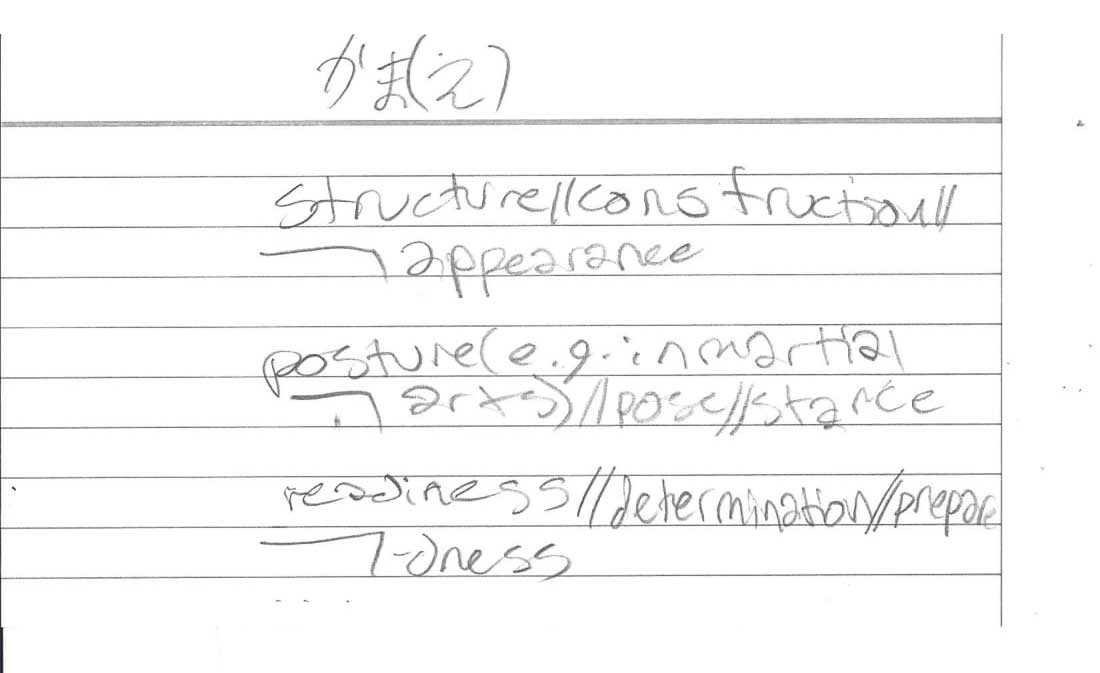 かま(え)
structure//construction//
appearance
posture(e.g. in martial
arts)//pose//stance
readiness//determination//prepare
-dness